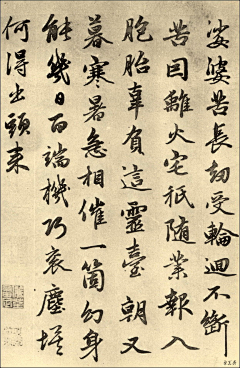 娑婆苦長劫受輪迴不斷
苦因離火宅祇隨業報入
胞胎辜負這靈臺朝又
暮寒暑急相催一箇幻身
能幾日百端機巧衮塵埃
何得出頭來